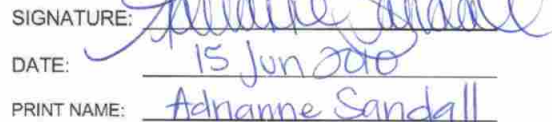 SIGNATURE:
DATE: 15 Jun 2010
PRINT NAME: Adrianne Sandall